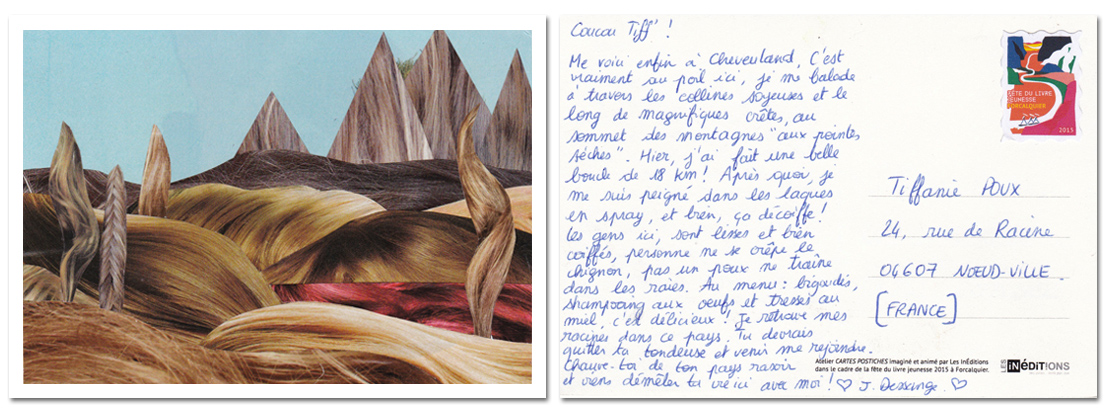 Coucou Tiff' !
Me voici enfin à Cheveuland, C'est
vraiment au poil ici, je me balade
à travers les collines soyeuses et le
long de magnifiques crêtes, au
sommet des montagnes "aux pointes
sèches". Hier, j'ai fait une belle
boucle de 18 km ! Après quoi, je
me suis peigné dans les laques
en spray, et bien, ça décoiffe !
Les gens ici, sont lisses et bien
coiffés, personne ne se crêpe le
chignon, pas un poux ne traîne
dans les raies. Au menu : bigoudis,
shampooing aux oeufs et tresses au
miel, c'est délicieux ! Je retrouve mes
racines dans ce pays. Tu devrais
quitter ta tondeuse et venir me rejoindre.
Chauve-toi de ton pays rasoir
et viens démêler ta vie ici avec moi ! ♡ J. Dessange. ♡
FÊTE DU LIVRE
JEUNESSE
FORCALQUIER
2015
Tiffanie POUX
24, rue de Racine
04607 NOEUD-VILLE
[FRANCE]
Atelier CARTES POSTICHES imaginé et animé par Les InÉditions
dans le cadre de la fête du livre jeunesse 2015 à Forcalquier.
LES INÉDITIONS